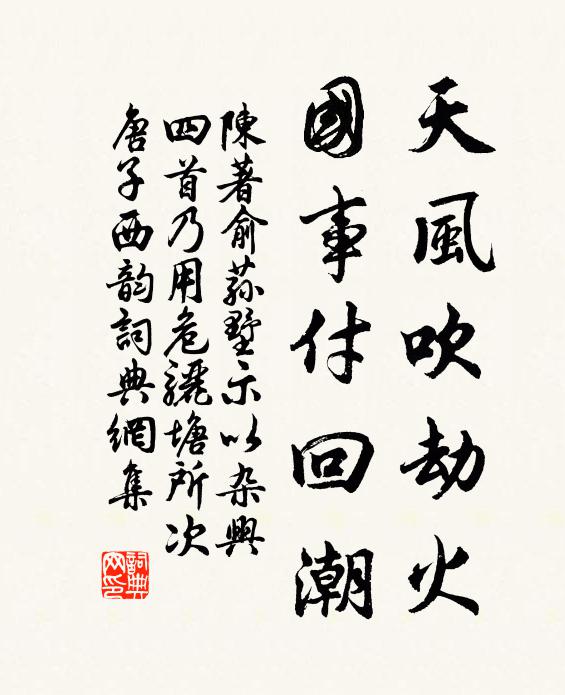 天風吹劫火
國事付回潮
陳著俞蓀墅示以杂興
四首乃用危驪塘所次
唐子西韵詞典網集
詞典網印